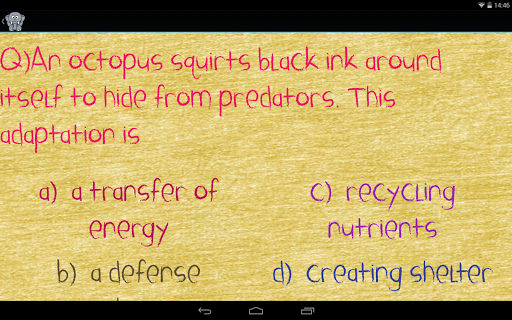 14:46
Q)An octopus squirts black ink around
itself to hide from predators. This
adaptation is
a) a transfer of
energy
b) a defense
c) recycling
nutrients
d) creating shelter